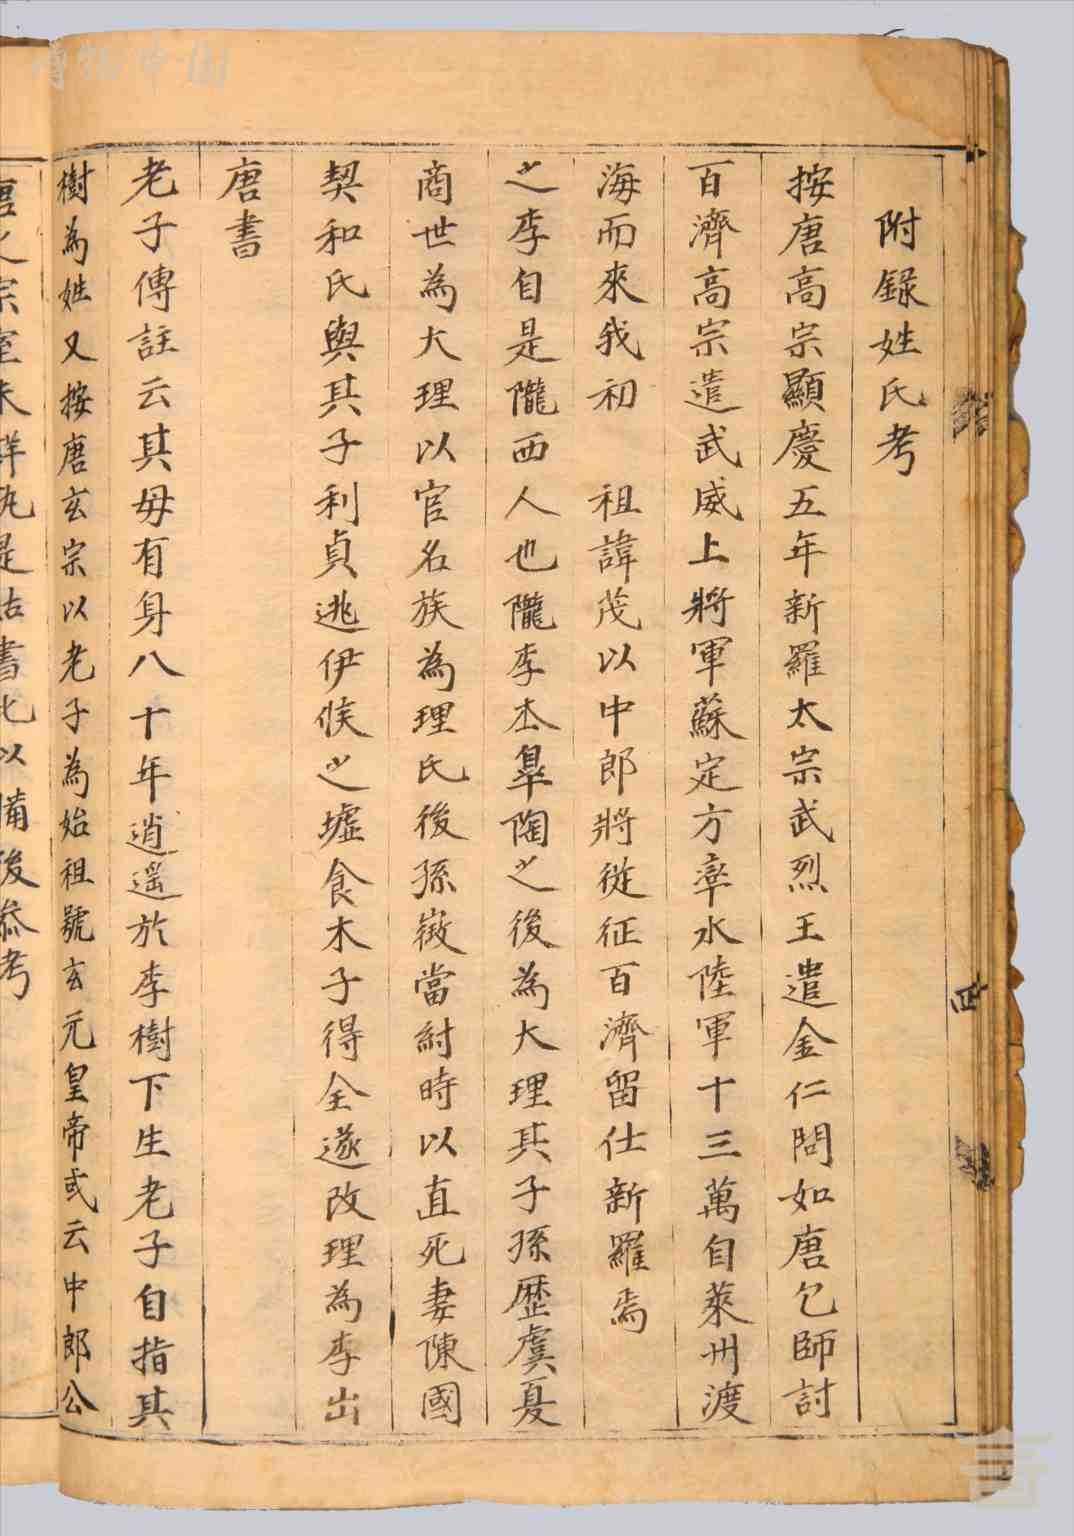 附錄姓氏考
按唐高宗顯慶五年新羅太宗武烈王遣金仁問如唐乞師討
百濟高宗遣武威上將軍蘇定方率水陸軍十三萬自萊州渡
海而來我初 祖諱茂以中郎將從征百濟留仕新羅焉
之李自是隴西人也隴李本皐陶之後為大理其子孫歷虞夏
商世為大理以官名族為理氏後孫徵當紂時以直死妻陳國
契和氏與其子利貞逃伊侯之墟食木子得全遂改理為李出
唐書
老子傳註云其母有身八十年逍遙於李樹下生老子自指其
樹為姓又按唐玄宗以老子為始祖號玄元皇帝或云中郎公
宗室未詳 是 書此以備後叅考
博物中國